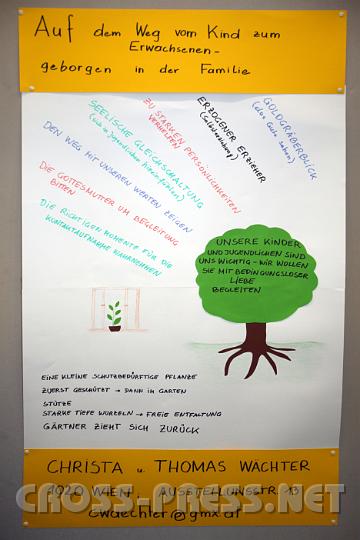 Auf dem Weg vom Kind zum
Erwachsenen-
geborgen in der Familie
GOLDGRÄBERBLICK
(das Gute sehen)
ERZOGENER ERZIEHER
(Selbsterziehung)
ZU STARKEN PERSÖNLICHKEITEN
VERHELFEN
SEELISCHE GLEICHSCHALTUNG
DEN WEG MIT UNSEREN WERTEN ZEIGEN
DIE GOTTESMUTTER UM BEGLEITUNG
BITTEN
DIE RICHTIGEN MOMENTE FÜR DIE
KONTAKTAUFNAHME WAHRNEHMEN
UNSERE KINDER
UND JUGENDLICHEN SIND
UNS WICHTIG - WIR WOLLEN
SIE MIT BEDINGUNGSLOSER
LIEBE
BEGLEITEN
EINE KLEINE SCHUTZBEDÜRFTIGE PFLANZE
ZUERST GESCHÜTZT → DANN IM GARTEN
STÜTZE
STARKE TIEFE WURZELN → FREIE ENTFALTUNG
GÄRTNER ZIEHT SICH ZURÜCK
CHRISTA u. THOMAS WÄCHTER
1020 WIEN AUSSTELLUNGSSTR.
cwaechter@gmx.at
CROSS-PRESS.NET